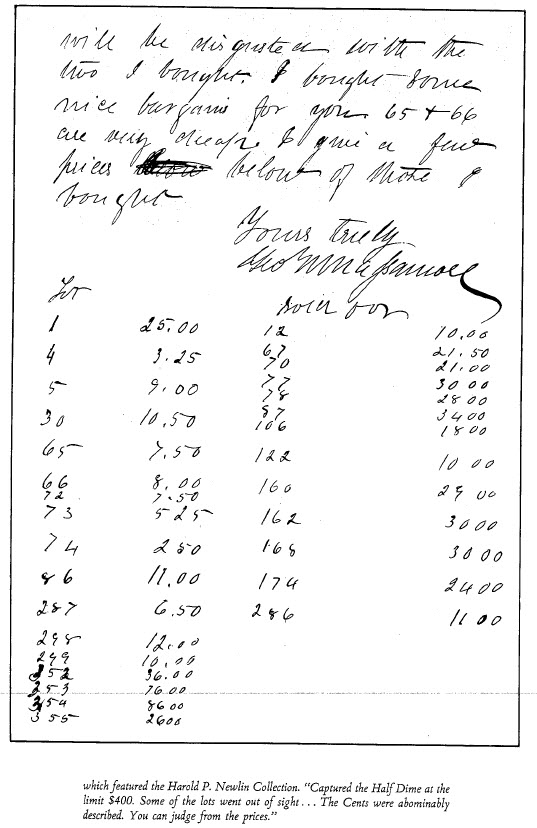 will be disgusted with the
two I bought. I bought some
nice bargains for you 65 + 66
are very cheap I give a few
prices below of those I
bought
Yours truly
Geo W Massamore
Lot
1 25.00 12 10.00
4 3.25 67 21.50
70 21.00
5 9.00 77 30 00
78 28 00
30 10.50 87 34 00
106 18 00
65 7.50 122 10 00
66 8.00 160 29 00
72 7.50
73 5 25 162 30 00
74 2 50 168 30 00
86 11.00 174 24 00
287 6.50 286 11 00
298 12.00
299 10.00
352 36.00
353 76.00
354 86 00
355 26 00
which featured the Harold P. Newlin Collection. "Captured the Half Dime at the
limit $400. Some of the lots went out of sight . . . The Cents were abominably
described. You can judge from the prices."